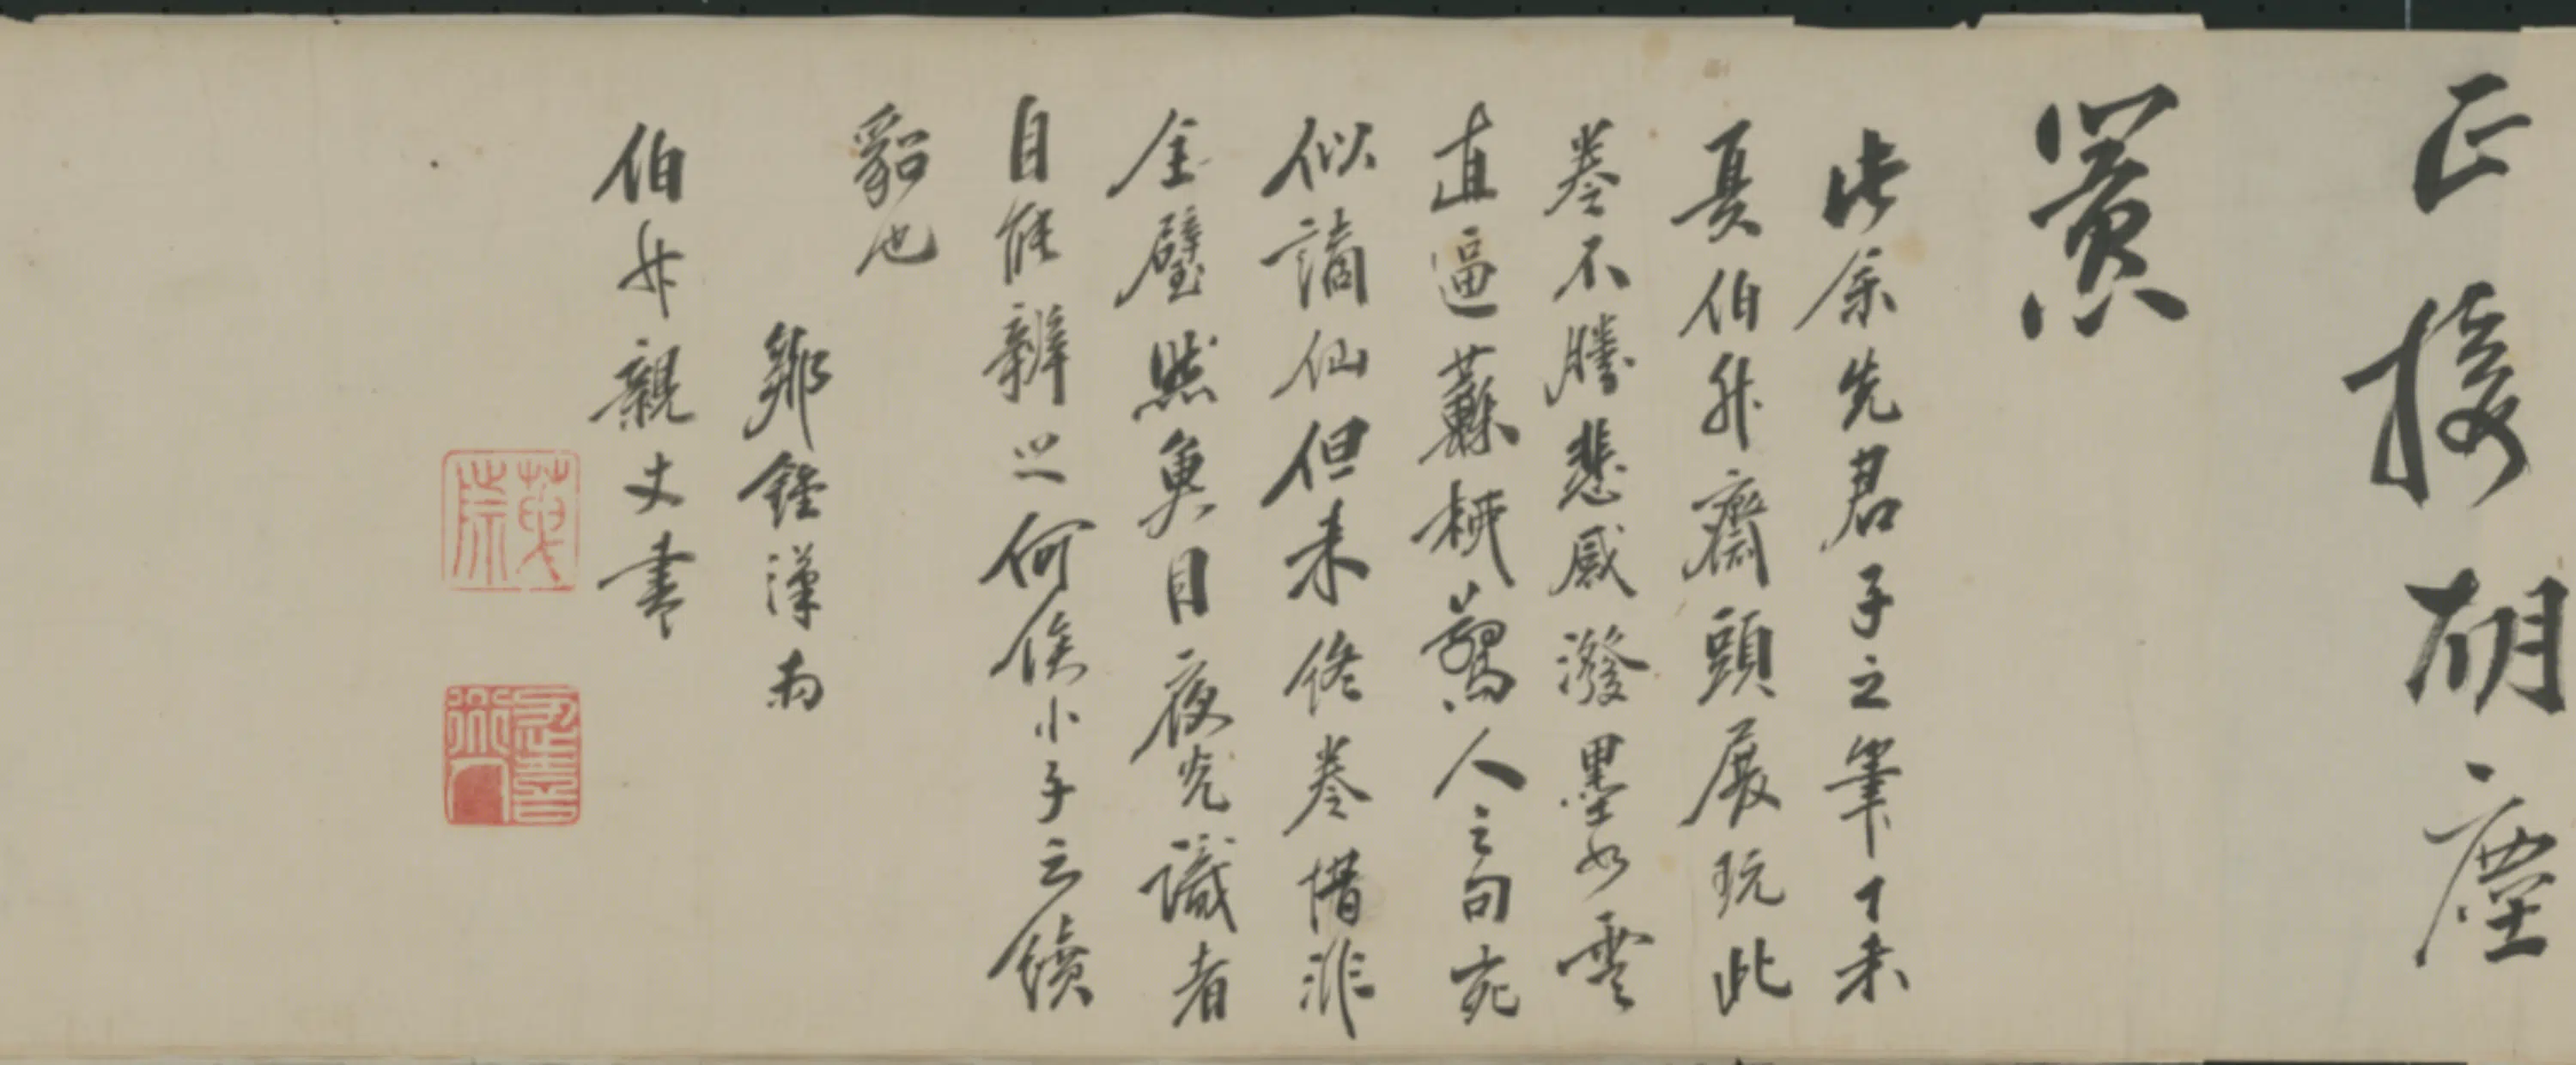 正接胡塵
此余先君子之筆丁未
夏伯升齋頭展玩此
卷不勝悲感潑墨如雲
直逼蘇驚人之句宛
似謫仙但未終卷惜非
全璧然魚目夜光識者
自能辨之何俟小子之續
貂也
鄒鍾漢為
伯升親丈書